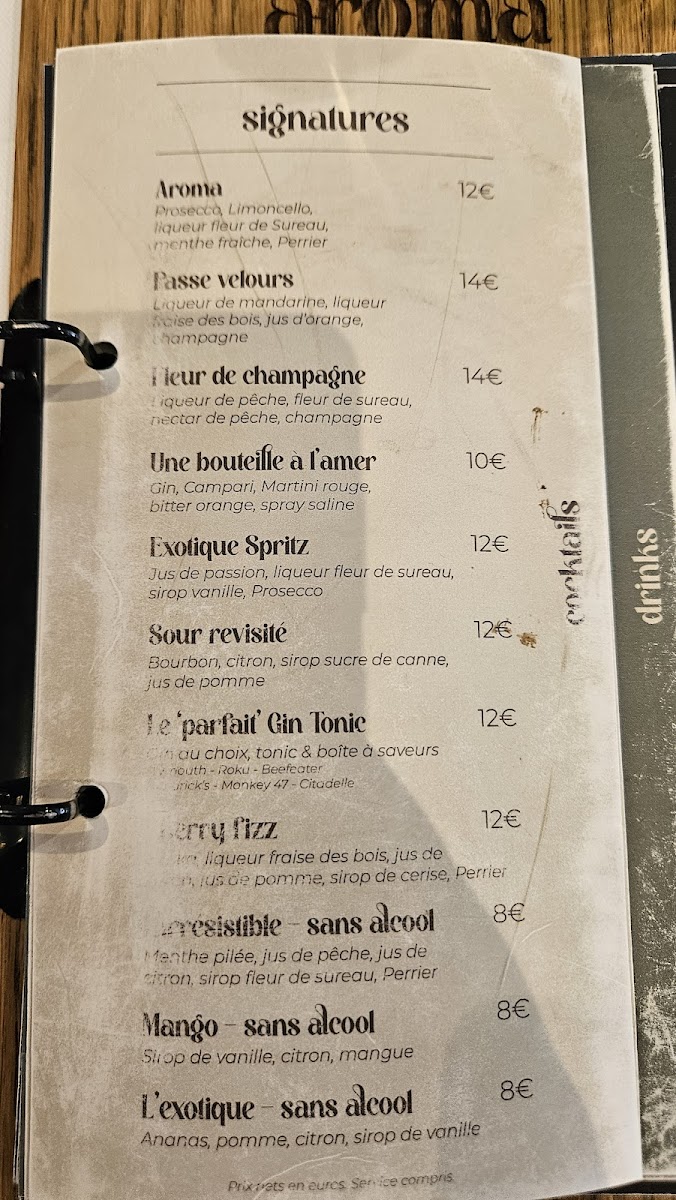 aroma
signatures
Aroma 12€
Prosecco, Limoncello,
liqueur fleur de Sureau,
menthe fraîche, Perrier
Passe velours 14€
Liqueur de mandarine, liqueur
fraise des bois, jus d'orange,
champagne
Fleur de champagne 14€
Liqueur de pêche, fleur de sureau,
nectar de pêche, champagne
Une bouteille à l'amer 10€
Gin, Campari, Martini rouge,
bitter orange, spray saline
Exotique Spritz 12€
Jus de passion, liqueur fleur de sureau,
sirop vanille, Prosecco
Sour revisité 12€
Bourbon, citron, sirop sucre de canne,
jus de pomme
Le 'parfait' Gin Tonic 12€
Gin au choix, tonic & boîte à saveurs
- Roku - Beefeater
- Monkey 47 - Citadelle
Berry fizz 12€
liqueur fraise des bois, jus de
jus de pomme, sirop de cerise, Perrier
Irresistible - sans alcool 8€
Menthe pilée, jus de pêche, jus de
citron, sirop fleur de sureau, Perrier
Mango - sans alcool 8€
Sirop de vanille, citron, mangue
L'exotique - sans alcool 8€
Ananas, pomme, citron, sirop de vanille
Prix nets en euros. Service compris.
cocktails
drinks